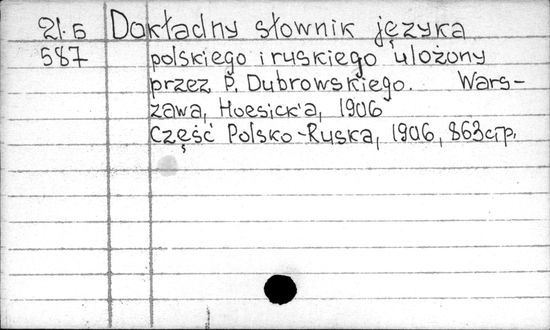 21.Б Dokładny słownik języka
587 polskiego i ruskiego ułożony
przez P. Dubrowskiego. Wars-
zawa, Hoesick'a, 1906
Część Polsko-Ruska, 1906, 863стр.